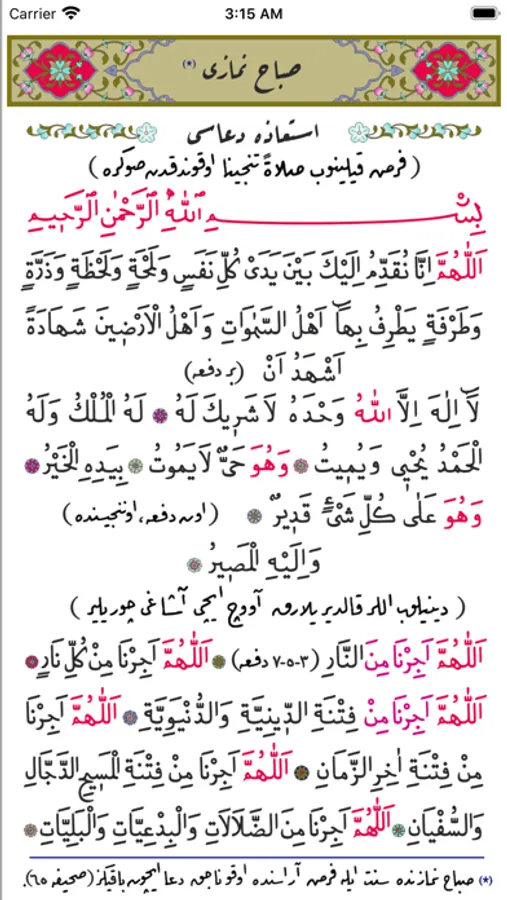 Carrier 3:15 AM
صباح نمازى (*)
استعاذه دعاسى
(فرض قیلینوب صلاةً تنجينا اوقوندقدن صوكره)
بِسْــــمِ اللّٰهِ الرَّحْمٰنِ الرَّحٖيمِ
اَللّٰهُمَّ اِنَّا نُقَدِّمُ اِلَيْكَ بَيْنَ يَدَىْ كُلِّ نَفَسٍ وَلَمْحَةٍ وَلَحْظَةٍ وَذَرَّةٍ
وَطَرْفَةٍ يَطْرِفُ بِهَٓا اَهْلُ السَّمٰوَاتِ وَاَهْلُ الْاَرَضٖينَ شَهَادَةً
اَشْهَدُ اَنْ (بر دفعه)
لَٓا اِلٰهَ اِلَّا اللّٰهُ وَحْدَهُ لَا شَرٖيكَ لَهُ لَهُ الْمُلْكُ وَلَهُ
الْحَمْدُ يُحْيٖى وَيُمٖيتُ وَهُوَ حَىٌّ لَا يَمُوتُ بِيَدِهِ الْخَيْرُ
وَهُوَ عَلٰى كُلِّ شَىْءٍ قَدٖيرٌ (اون دفعه، اوننجيسنده)
وَاِلَيْهِ الْمَصٖيرُ
(دينيلوب اللر قالديريلارق آووچ ايچى آشاغى چوريلير)
اَللّٰهُمَّ اَجِرْنَا مِنَ النَّارِ (٣-٥-٧ دفعه) اَللّٰهُمَّ اَجِرْنَا مِنْ كُلِّ نَارٍ
اَللّٰهُمَّ اَجِرْنَا مِنْ فِتْنَةِ الدّٖينِيَّةِ وَالدُّنْيَوِيَّةِ اَللّٰهُمَّ اَجِرْنَا
مِنْ فِتْنَةِ اٰخِرِ الزَّمَانِ اَللّٰهُمَّ اَجِرْنَا مِنْ فِتْنَةِ الْمَسٖيحِ الدَّجَّالِ
وَالسُّفْيَانِ اَللّٰهُمَّ اَجِرْنَا مِنَ الضَّلَالَاتِ وَالْبِدْعِيَّاتِ وَالْبَلِيَّاتِ
(*) صباح نمازنده سنت ايله فرض آراسنده اوقوناجق دعا ايچون باقيڭز (صحيفه ٦٥).